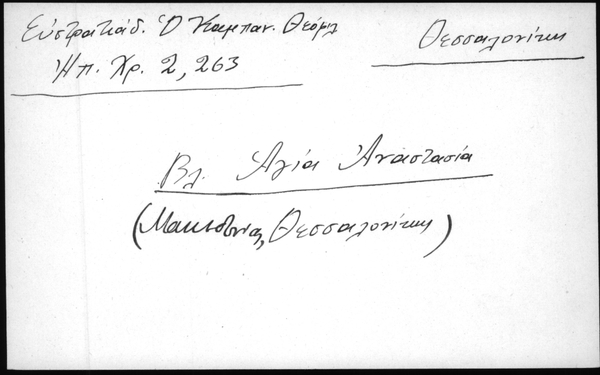 Εὐστρατιάδ. Ὁ Καμπαν. Θεόφιλ
Θεσσαλονίκη
Ἠπ. Χρ. 2, 263
Βλ. Ἁγία Ἀναστασία
(Μακεδονίας, Θεσσαλονίκη)